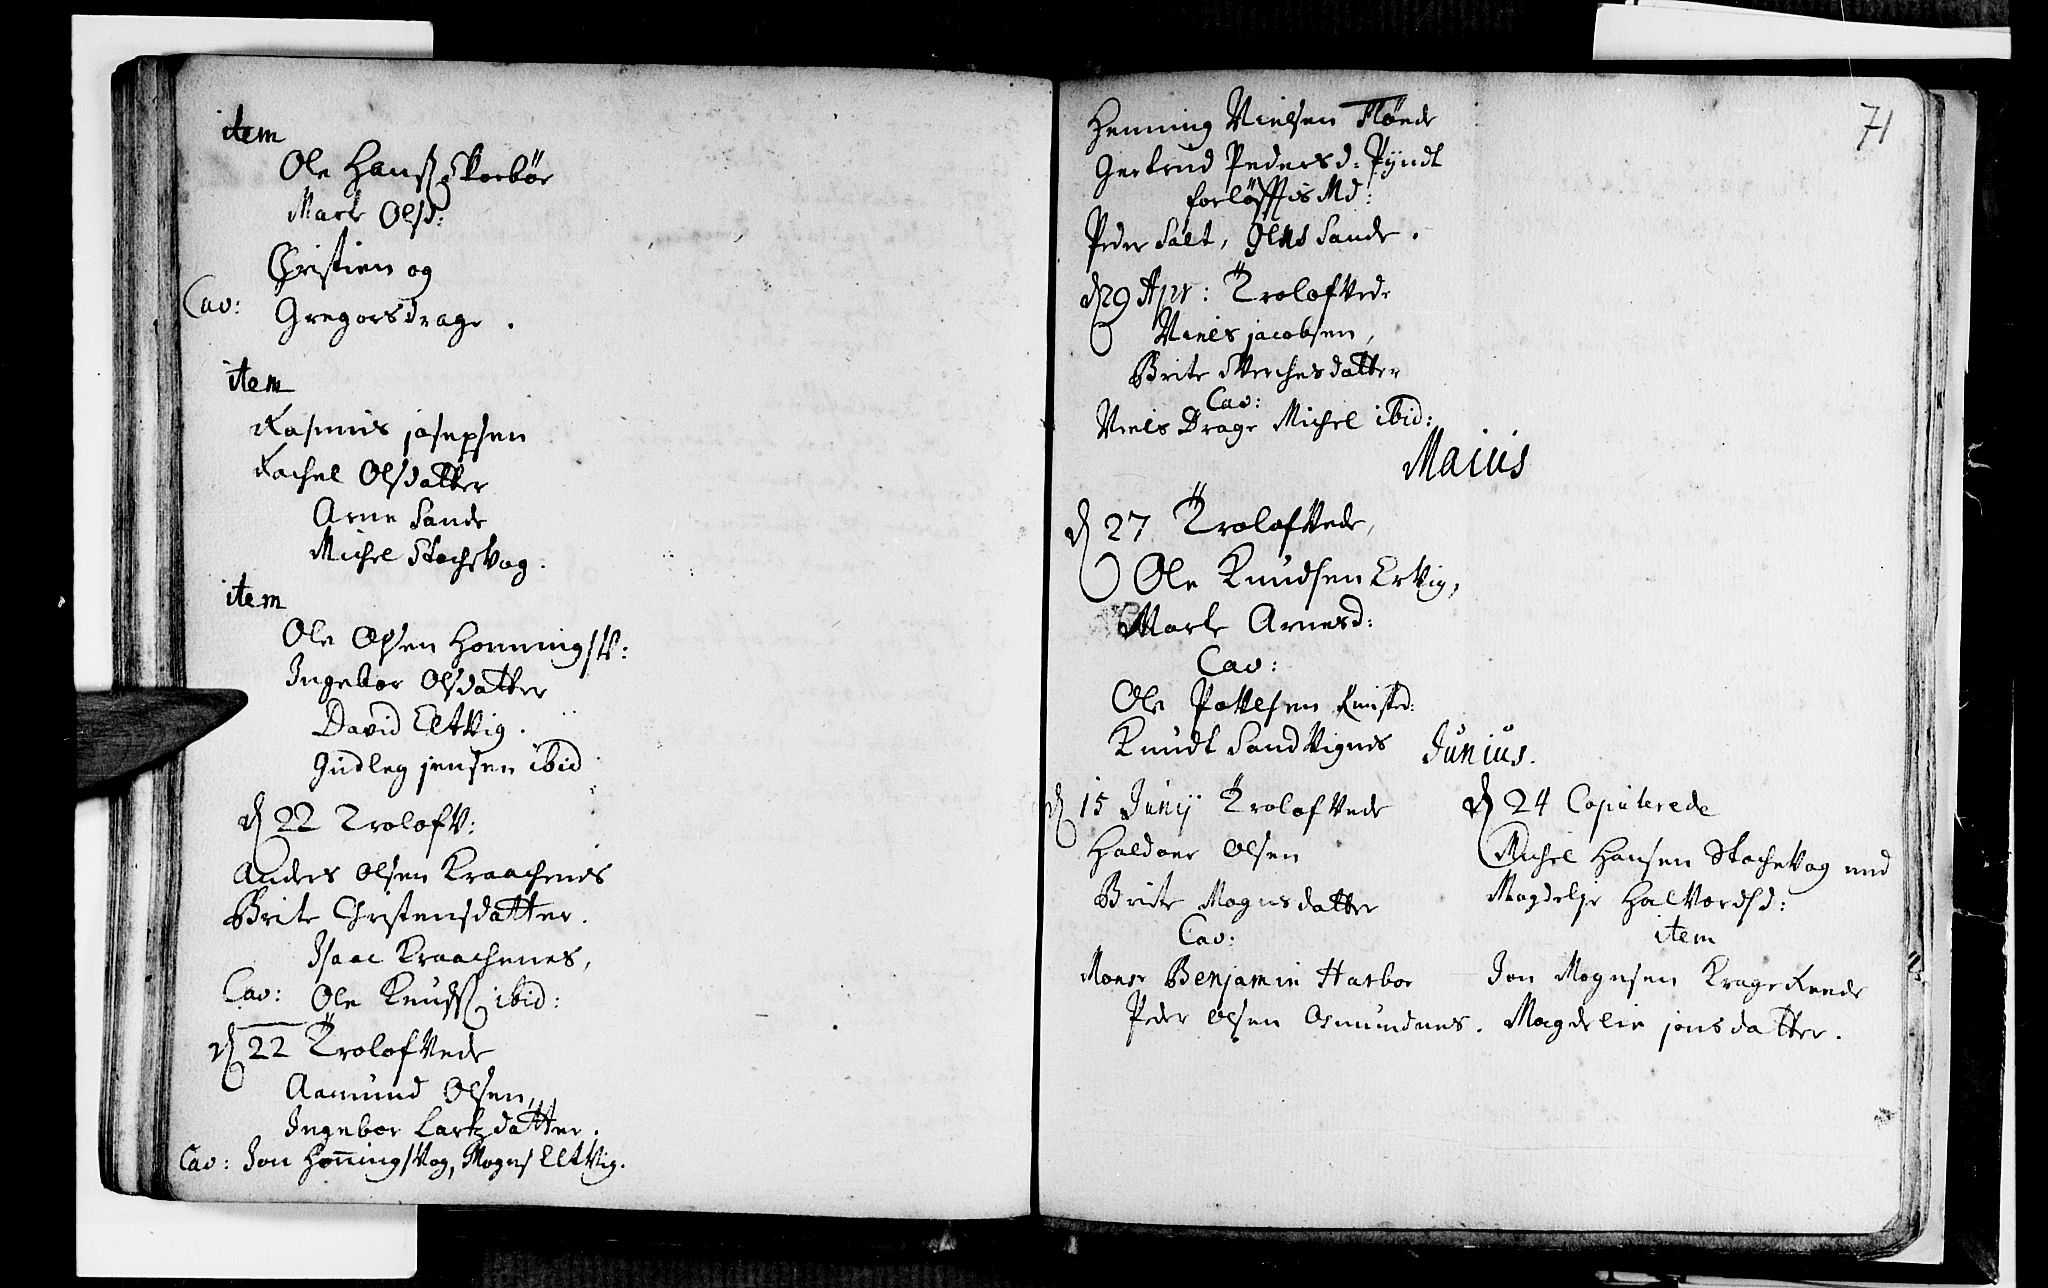 item
Ole Hanss: Skorbör
Marte Olsd:
Christien og
Cav: Gregorsdrage.
item
Rasmus josepsen
Rachel Olsdatter
Arne Sande
Michel Stochevog.
item
Ole Olsen Honningsv:
Ingebor Olsdatter
David Eltvig.
Gudleg jensen ibid
d 22 Trolofv:
Anders Olsen Kraachenes
Brite Christensdatter.
Isaac Kraachenes,
Cav: Ole Knuds: ibid:
d 22 Trolofvede
Aamund Olsen,
Ingebor Lartzdatter.
Cav: Jon Honningsvog, Mogns Eltvig.
71
Henning Nielsen Flöede
Gertrud Pedersd: Pyndt
forlöffris Md:
Peder Salt, Sande.
d 29 Apr: Trolofvede
Niels jacobsen,
Brite Sverchesdatter
Cav:
Niels Drage Michel ibid:
Maius
d 27 Trolofvede,
Ole Knudsen Ervig,
Marte Arnesd:
Cav:
Ole Povelsen
Knudt Sandvignes
Junius.
d 15 Junij Trolofvede
Haldoer Olsen
Brite Mognsdatter
Cav:
Monsr Benjamin Harboe
Peder Olsen Osmundnes.
d 24 Copulerede
Michel Hansen Stochevog med
Magdelje Halvordsd:
item
Jon Mognsen Kragereede
Magdelie jonsdatter.